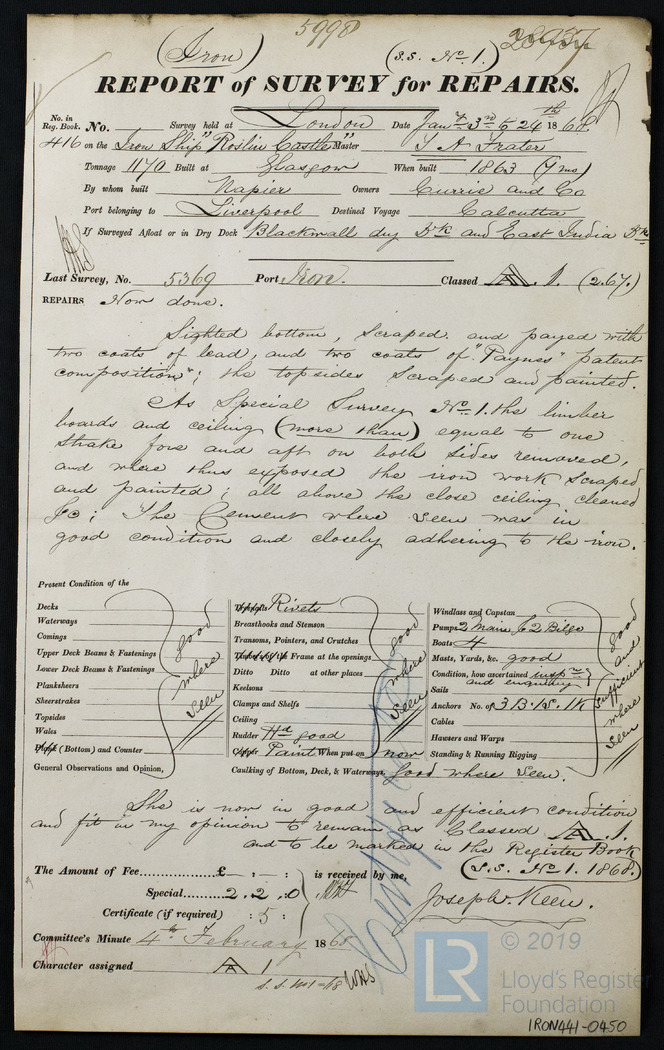 5998
(Iron)
(S.S. No. 1.) 28937
REPORT of SURVEY for REPAIRS.
No. in Reg. Book. No. Survey held at London Date Jany 3rd & 24th 1868
416 on the Iron Ship "Roslin Castle" Master J A Frater
Tonnage 1170 Built at Glasgow When built 1863 (7 mo)
By whom built Napier Owners Currie and Co
Port belonging to Liverpool Destined Voyage Calcutta
If Surveyed Afloat or in Dry Dock Blackwall dry Dk and East India Dk
WHS
Last Survey, No. 5369 Port Iron. Classed A. 1. (2.67.)
REPAIRS Now done.
Sighted bottom, scraped and payed with
two coats of lead, and two coats of "Paynes" patent
composition"; the topsides scraped and painted.
As Special Survey No. 1. the limber
boards and ceiling (more than) equal to one
strake fore and aft on both sides removed,
and where thus exposed the iron work scraped
and painted; all above the close ceiling cleaned
&c; The Cement where seen was in
good condition and closely adhering to the iron.
Present Condition of the
Decks
Waterways
Comings
Upper Deck Beams & Fastenings
Lower Deck Beams & Fastenings
Planksheers
Sheerstrakes
Topsides
Wales
(Bottom) and Counter
good where seen
General Observations and Opinion,
Rivets
Breasthooks and Stemson
Transoms, Pointers, and Crutches
Frame at the openings
Ditto Ditto at other places
Keelsons
Clamps and Shelfs
Ceiling
good where seen
Rudder Hd good
Copper Paint When put on now
Caulking of Bottom, Deck, & Waterways, Good where seen.
Windlass and Capstan
Pumps 2 Main & 2 Bilge
Boats 4
Masts, Yards, &c. good
Condition, how ascertained inspn and enquiring
Sails
Anchors No. of 3 B. 1 S. 1 K
Cables
Hawsers and Warps
Standing & Running Rigging
good and sufficient where seen
She is now in good and efficient condition
and fit in my opinion to remain as Classed A. 1.
and to be marked in the Register Book
(S.S. No 1. 1868.)
The Amount of Fee £ - : - : - is received by me,
Special 2 . 2 . 0
Certificate (if required) : 5 :
Joseph. Keen.
Committee's Minute 4th February 1868
Character assigned A 1
S.S. No 1 - 1/68 WHS
LR © 2019
Lloyd's Register
Foundation
IRON441-0450